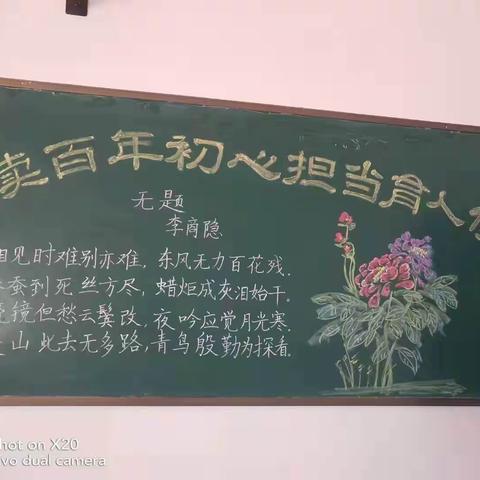 百年初心担当育人
无题
李商隐
相见时难别亦难，东风无力百花残.
蚕到死丝方尽，蜡炬成灰泪始干.
镜但愁云鬓改，夜吟应觉月光寒.
山此去无多路，青鸟殷勤为探看.
hot on X20
vo dual camera